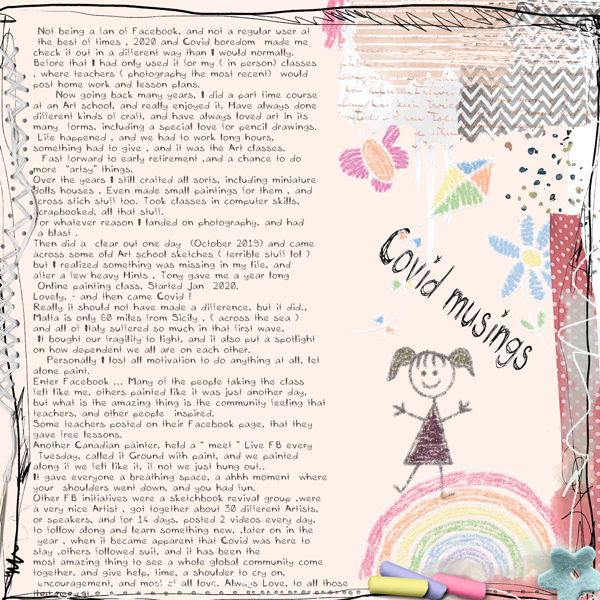 Not being a fan of Facebook, and not a regular user at
the best of times , 2020 and Covid boredom made me
check it out in a different way than I would normally.
Before that I had only used it for my ( in person) classes
, where teachers ( photography the most recent) would
post home work and lesson plans.
Now going back many years, I did a part time course
at an Art school, and really enjoyed it, Have always done
different kinds of craft, and have always loved art in its
many forms, including a special love for pencil drawings.
Life happened , and we had to work long hours,
something had to give , and it was the Art classes.
Fast forward to early retirement ,and a chance to do
more "artsy" things.
Over the years I still crafted all sorts, including miniature
dolls houses , Even made small paintings for them , and
cross stich stuff too. Took classes in computer skills,
scrapbooked, all that stuff.
or whatever reason I landed on photography, and had
a blast .
Then did a clear out one day (October 2019) and came
across some old Art school sketches ( terrible stuff lol )
but I realized something was missing in my life, and
after a few heavy Hints , Tony gave me a year long
Online painting class, Started Jan 2020.
Lovely, - and then came Covid !
Really it should not have made a difference, but it did..
Malta is only 60 miles from Sicily , ( across the sea )
and all of Italy suffered so much in that first wave,
It bought our fragility to light, and it also put a spotlight
on how dependent we all are on each other.
Personally I lost all motivation to do anything at all, let
alone paint.
Enter Facebook ... Many of the people taking the class
felt like me, others painted like it was just another day,
but what is the amazing thing is the community feeling that
teachers, and other people inspired.
Some teachers posted on their Facebook page, that they
gave free lessons.
Another Canadian painter, held a " meet " Live FB every
Tuesday, called it Ground with paint, and we painted
along if we felt like it, if not we just hung out..
It gave everyone a breathing space, a ahhh moment where
your shoulders went down, and you had fun.
Other FB initiatives were a sketchbook revival group ,were
a very nice Artist , got together about 30 different Artists,
or speakers, and for 14 days, posted 2 videos every day,
to follow along and learn something new, ,later on in the
year , when it became apparent that Covid was here to
stay ,others followed suit, and it has been the
most amazing thing to see a whole global community come
together, and give help, time, a shoulder to cry on,
encouragement, and most of all love. Always Love, to all those
Covid musings